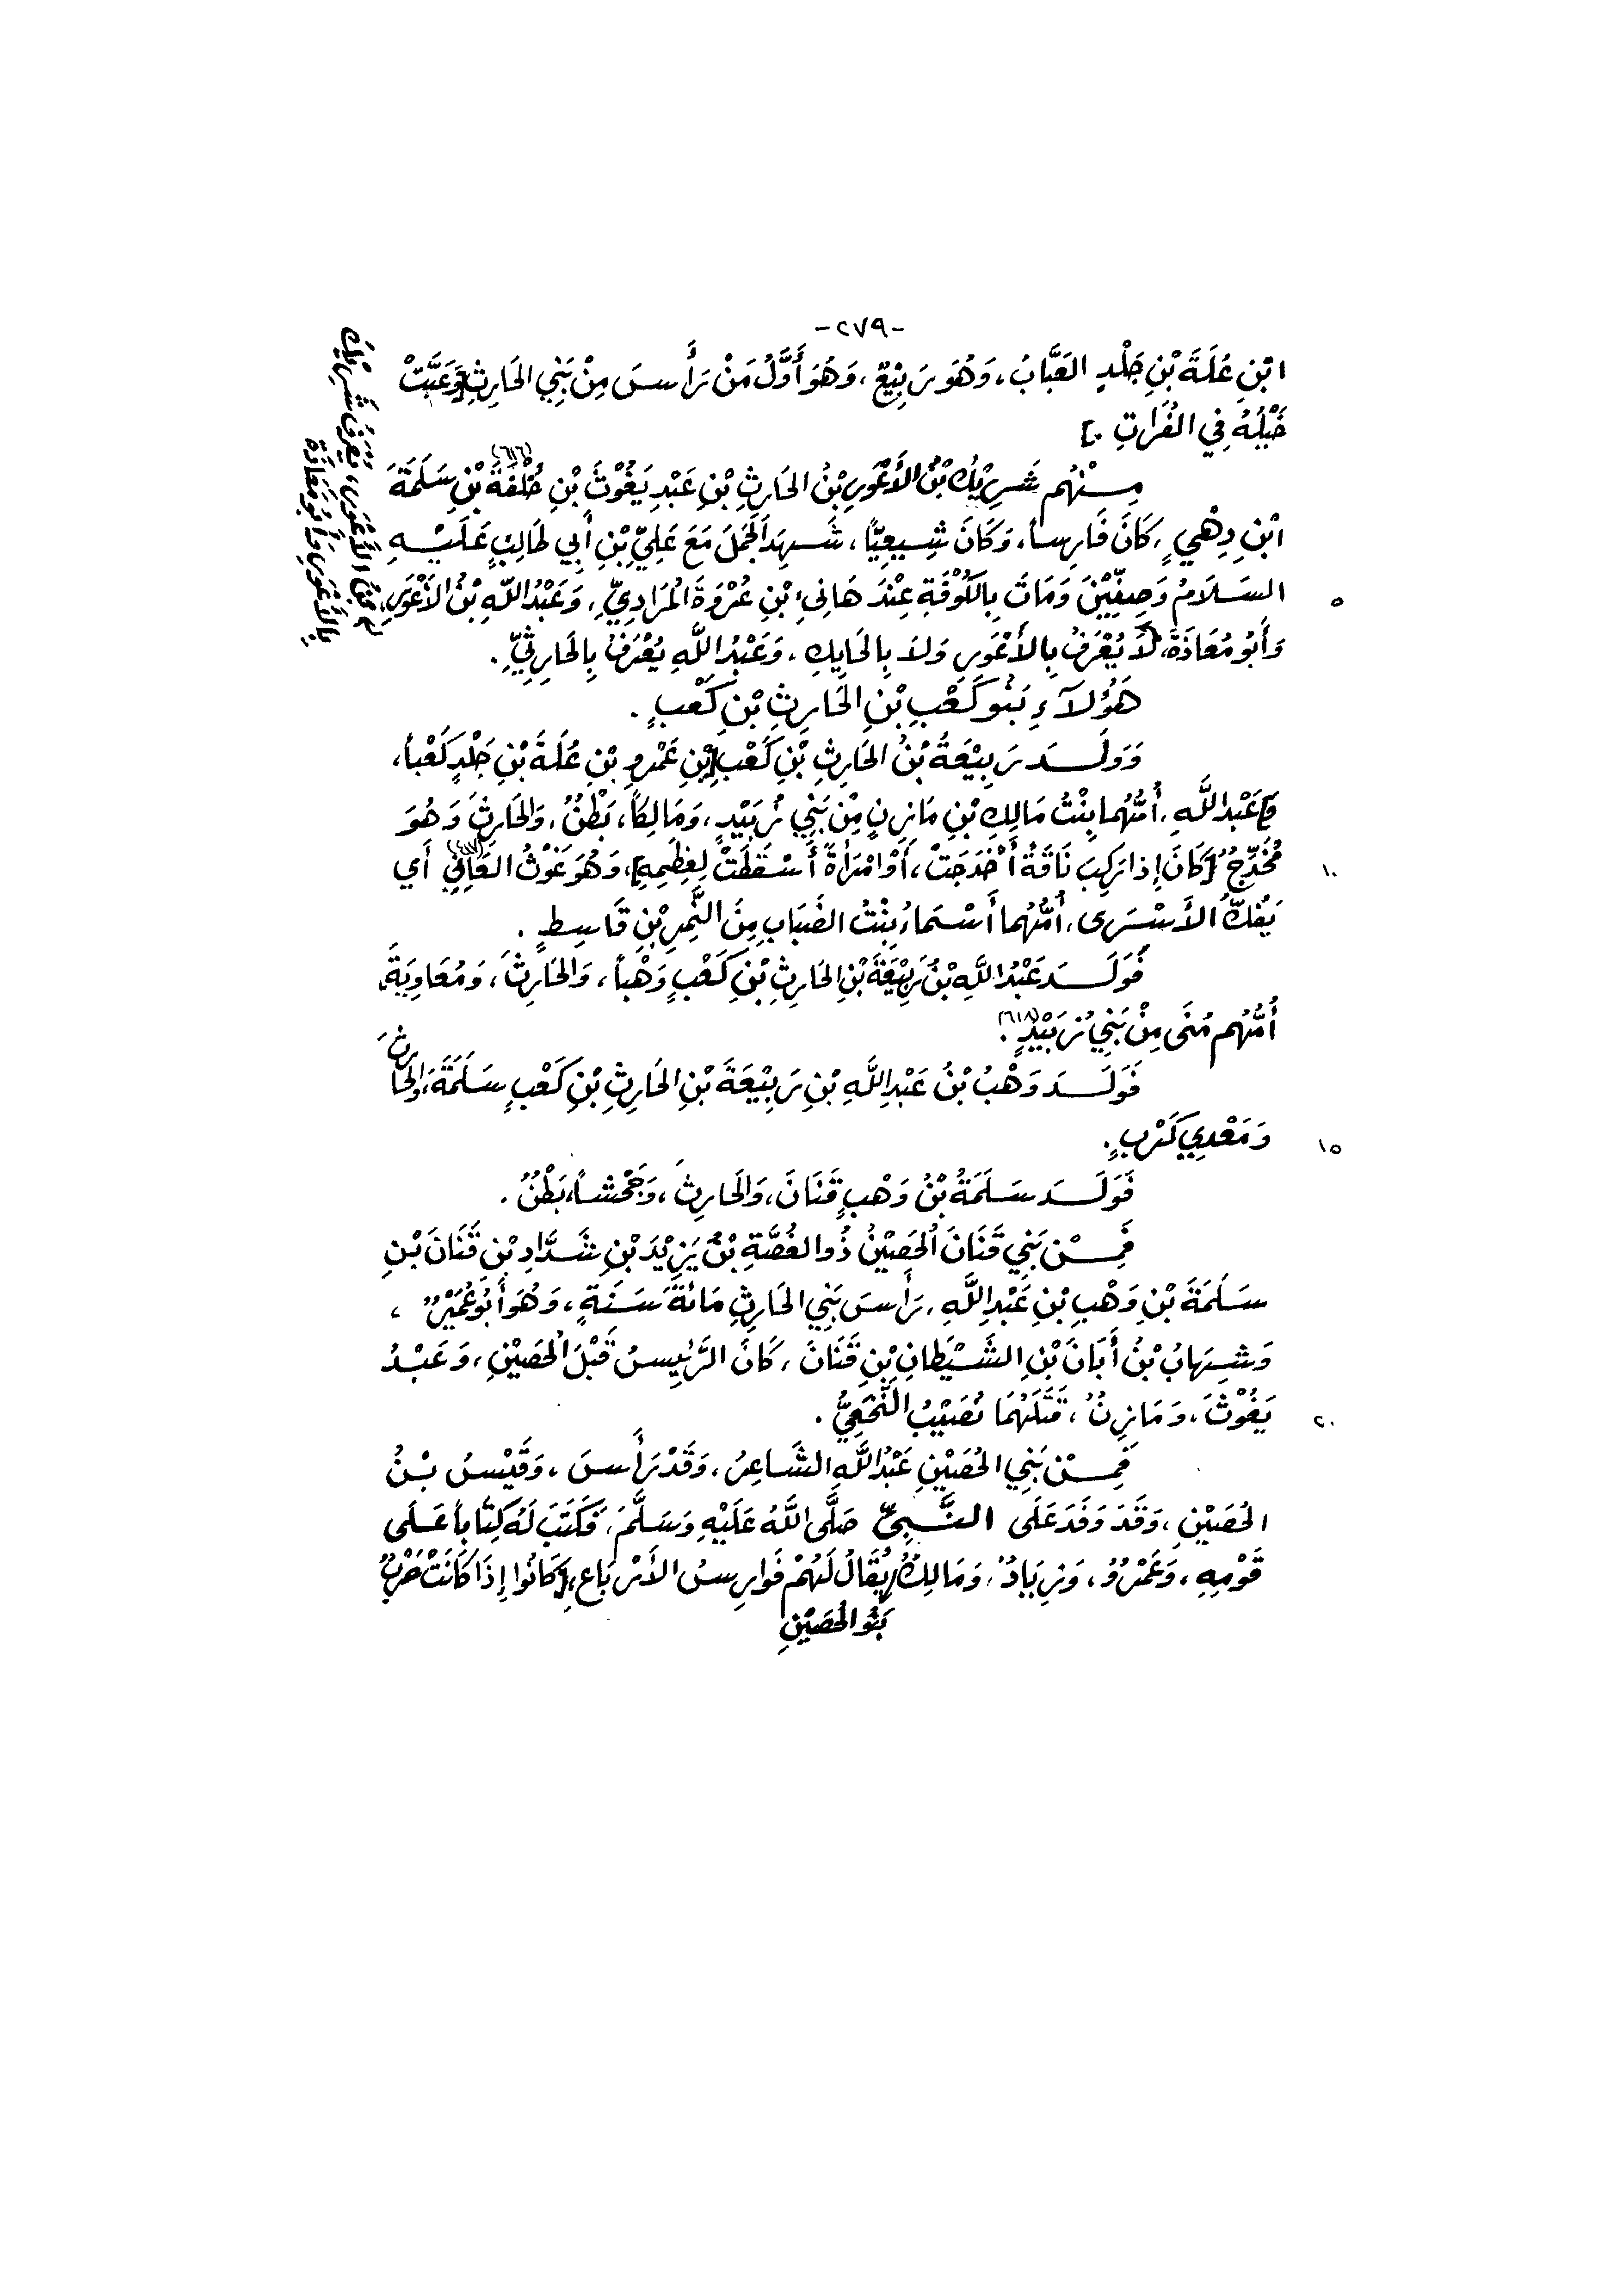 -٢٧٩-
ابْنِ عُلَةَ بْنِ جَلْدٍ العَبَّابُ، وَهُوَ رَبِيْعٌ، وَهُوَ أَوَّلُ مَنْ رَأَسَ مِنْ بَنِي الحَارِثِ [وَعَبَّتْ
خَيْلُهُ فِي الفُرَاتِ.]
مِنْهُم شَرِيْكُ بْنُ الأَعْوَرِ بْنُ الحَارِثِ بْنِ عَبْدِ يَغُوْثَ بْنِ خُلْفَةَ (٦١٦) بْنِ سَلَمَةَ
ابْنِ دِهْيٍ، كَانَ فَارِساً، وَكَانَ شِيعِيّاً، شَهِدَ الجَمَلَ مَعَ عَلِيِّ بْنِ أَبِي طَالِبٍ عَلَيْهِ
٥ السَلَامُ وَصِفِّيْنَ وَمَاتَ بِالكُوْفَةِ عِنْدَ هَانِىءِ بْنِ عُرْوَةَ المُرَادِيِّ، وَعَبْدُ اللهِ بْنُ الأَعْوَرِ،
وَأَبُو مُعَاذَةَ، لَا يُعْرَفُ بِالأَعْوَرِ وَلَا بِالحَايِكِ، وَعَبْدُ اللَّهِ يُعْرَفُ بِالحَارِثِيِّ.
هَؤُلَآءِ بَنُو كَعْبِ بْنِ الحَارِثِ بْنِ كَعْبٍ.
وَوَلَدَ رَبِيْعَةُ بْنُ الحَارِثِ بْنِ كَعْبِ [بْنِ عَمْرِو بْنِ عُلَةَ بْنِ جَلْدٍ كَعْباً،
وَ] عَبْدَ اللَّهِ، أُمُّهُما بِنْتُ مَالِكِ بْنِ مَازِنٍ مِنْ بَنِي زُبَيْدٍ، وَمَالِكاً، بَطْنٌ، وَالحَارِثَ وَهُوَ
١٠ مُخَدِّجٌ [كَانَ إِذا رَكِبَ نَاقَةً أَخْدَجَتْ، أَوْ امْرَأَةً أَسْقَطَتْ لِعِظَمِهِ]، وَهُوَ غَوْثُ العَانِي (٦١٧) أَي
يَفُكُّ الأَسْرَى، أُمُّهُما أَسْمَاءُ بِنْتُ الضَبَابِ مِنَ النَّمِرِ بْنِ قَاسِطٍ.
فَوَلَدَ عَبْدُ اللَّهِ بْنُ رَبِيْعَةَ بْنِ الحَارِثِ بْنِ كَعْبٍ وَهْباً، وَالحَارِثَ، وَمُعَاوِيَةَ،
أُمُّهُم مُنَى مِنْ بَنِي زُبَيْدٍ (٦١٨).
فَوَلَدَ وَهْبُ بْنُ عَبْدِ اللَّهِ بْنِ رَبِيْعَةَ بْنِ الحَارِثِ بْنِ كَعْبٍ سَلَمَةَ، وَالحَارِثَ
١٥ وَمَعْدِي كَرْبٍ.
فَوَلَدَ سَلَمَةُ بْنُ وَهْبٍ قَنَانَ، وَالحَارِثَ، وَجَحْشاً، بَطْنٌ.
فَمِنْ بَنِي قَنَانَ الحُصَيْنُ ذُو الغُصَّةِ بْنُ يَزِيْدَ بْنِ شَدَّادِ بْنِ قَنَانَ بْنِ
سَلَمَةَ بْنِ وَهْبِ بْنِ عَبْدِ اللَّهِ، رَأَسَ بَنِي الحَارِثِ مَائَةَ سَنَةٍ، وَهُوَ أَبُو عُمَيْرٍ،
وَشِهَابُ بْنُ أَبَانَ بْنِ الشَيْطَانِ بْنِ قَنَانَ، كَانَ الرَّئِيسُ قَبْلَ الحُصَيْنِ، وَعَبْدُ
٢٠ يَغُوْثَ، وَمَازِنٌ، قَتَلَهُمَا نُصَيْبُ النَّخَعِيُّ.
فَمِنْ بَنِي الحُصَيْنِ عَبْدُ اللَّهِ الشَّاعِرُ، وَقَدْ رَأَسَ، وَقَيْسُ بْنُ
الحُصَيْنِ، وَقَدَ وَفَدَ عَلَى النَّبِيِّ صَلَّى اللَّهُ عَلَيْهِ وَسَلَّمَ، فَكَتَبَ لَهُ كِتَاباً عَلَى
قَوْمِهِ، وَعَمْرٌو، وَزِيَادٌ، وَمَالِكٌ، يُقَالُ لَهُمْ فَوَارِسُ الأَرْبَاعِ، [كَانُوا إِذَا كَانَتْ حَرْبٌ
بَنُو الحُصَيْنِ
بْنُ الأَعْوَرِ، يُعْرَفُ شَرِيْكُ
بِالأَعْوَرِ وَأَبُو مُعَاذَةَ